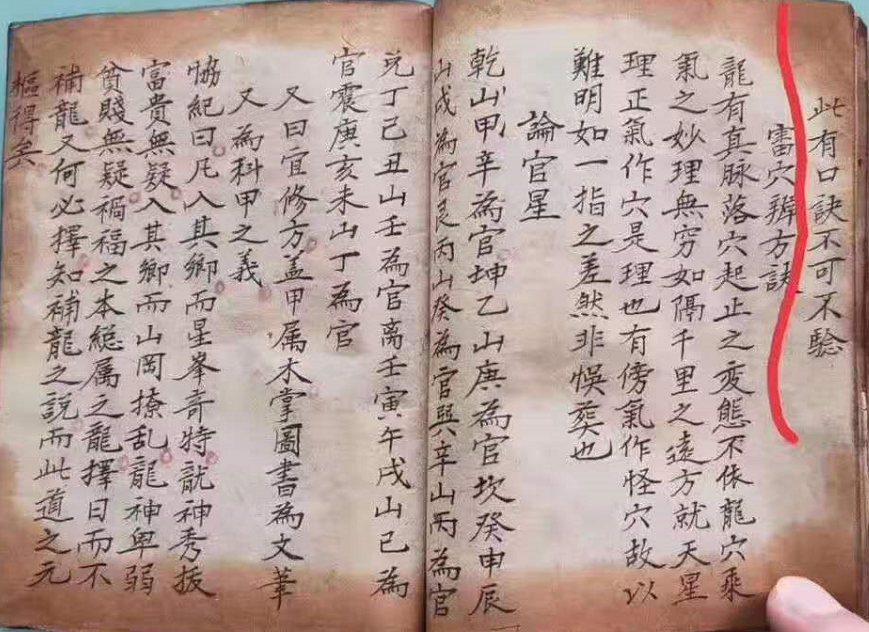 此有口訣不可不驗
審穴辨方訣
龍有真脉落穴起止之变態不依龍穴乘
氣之妙理無窮如隔千里之遠方就天星
理正氣作穴是理也有傍氣作怪穴故以
難明如一指之差然非悮葬也
論官星
乾山甲辛為官坤乙山庚為官坎癸申辰
山戌為官艮丙山癸為官巽辛山丙為官
兑丁己丑山壬為官离壬寅午戌山己為
官震庚亥未山丁為官
又曰宜修方盖甲属木掌圖書為文筆
又為科甲之義
恊紀曰凡入其鄉而星峯奇特龍神秀拔
富貴無疑入其鄉而山岡撩乱龍神卑弱
貧賤無疑禍福之本縂属之龍擇日而不
補龍又何必擇知補龍之説而此道之元
樞得矣